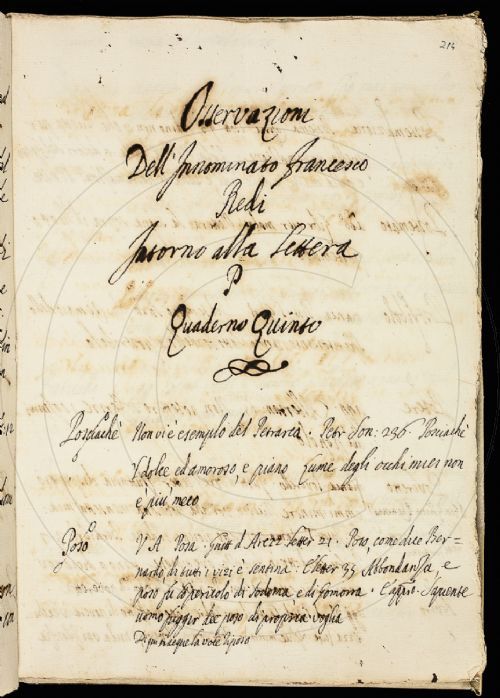 214
Osservazioni
Dell'Innominato Francesco
Redi
Intorno alla Lettera
P
Quaderno Quinto
Posciachè Non vi è esempio del Petrarca. Petr. Son: 236 Posciachè
'l dolce ed amoroso, e piano lume degli occhi miei non
è più meco
Poso V A Posa. Guitt d Arezz letter 21. Poso, come dice Ber=
nardo, di tutti i vizi è sentina: E letter 33 Abbondanza, e
poso fu pericolo di Sodoma e di Gomorra. E appr. Seguente
uomo fuggir dee poso di propria voglia